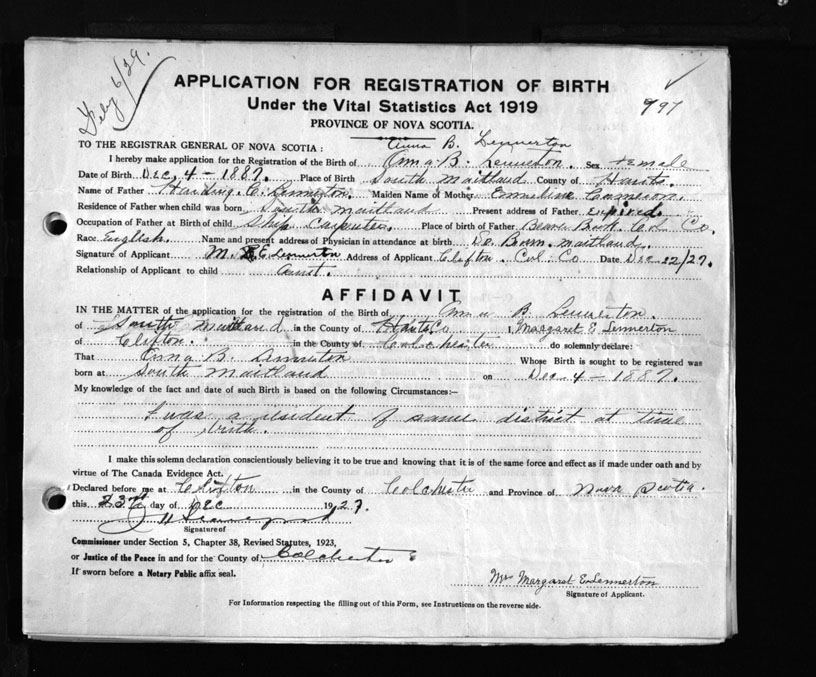 Feby 6/29.
APPLICATION FOR REGISTRATION OF BIRTH
Under the Vital Statistics Act 1919
997
PROVINCE OF NOVA SCOTIA.
Anna B. Lennerton
TO THE REGISTRAR GENERAL OF NOVA SCOTIA :
I hereby make application for the Registration of the Birth of Anna B. Lennerton. Sex Female
Date of Birth Dec, 4 - 1887. Place of Birth South Maitland County of Hants.
Name of Father Harding. C. Lennerton. Maiden Name of Mother Emmeline Cameron.
Residence of Father when child was born South Maitland Present address of Father Expired.
Occupation of Father at Birth of child Ship Carpenter. Place of birth of Father Beaver Brook. Col. Co.
Race English. Name and present address of Physician in attendance at birth Maitland.
Signature of Applicant M. E. Lennerton Address of Applicant Clifton. Col. Co Date Dec 22/27.
Relationship of Applicant to child Aunt.
AFFIDAVIT
IN THE MATTER of the application for the registration of the Birth of Anna B Lennerton.
of South Maitland in the County of Hants Co I, Margaret E Lennerton
of Clifton. in the County of Colchester do solemnly declare:
That Anna B. Lennerton Whose Birth is sought to be registered was
born at South Maitland on Dec. 4 - 1887.
My knowledge of the fact and date of such Birth is based on the following Circumstances:-
I was a resident of same district at time
of birth.
I make this solemn declaration conscientiously believing it to be true and knowing that it is of the same force and effect as if made under oath and by
virtue of The Canada Evidence Act.
Declared before me at Clifton in the County of Colchester and Province of Nova Scotia.
this 23rd day of Dec 1927.
Signature of
Commissioner under Section 5, Chapter 38, Revised Statutes, 1923,
or Justice of the Peace in and for the County of Colchester
If sworn before a Notary Public affix seal.
Mrs Margaret E Lennerton
Signature of Applicant.
For Information respecting the filling out of this Form, see Instructions on the reverse side.